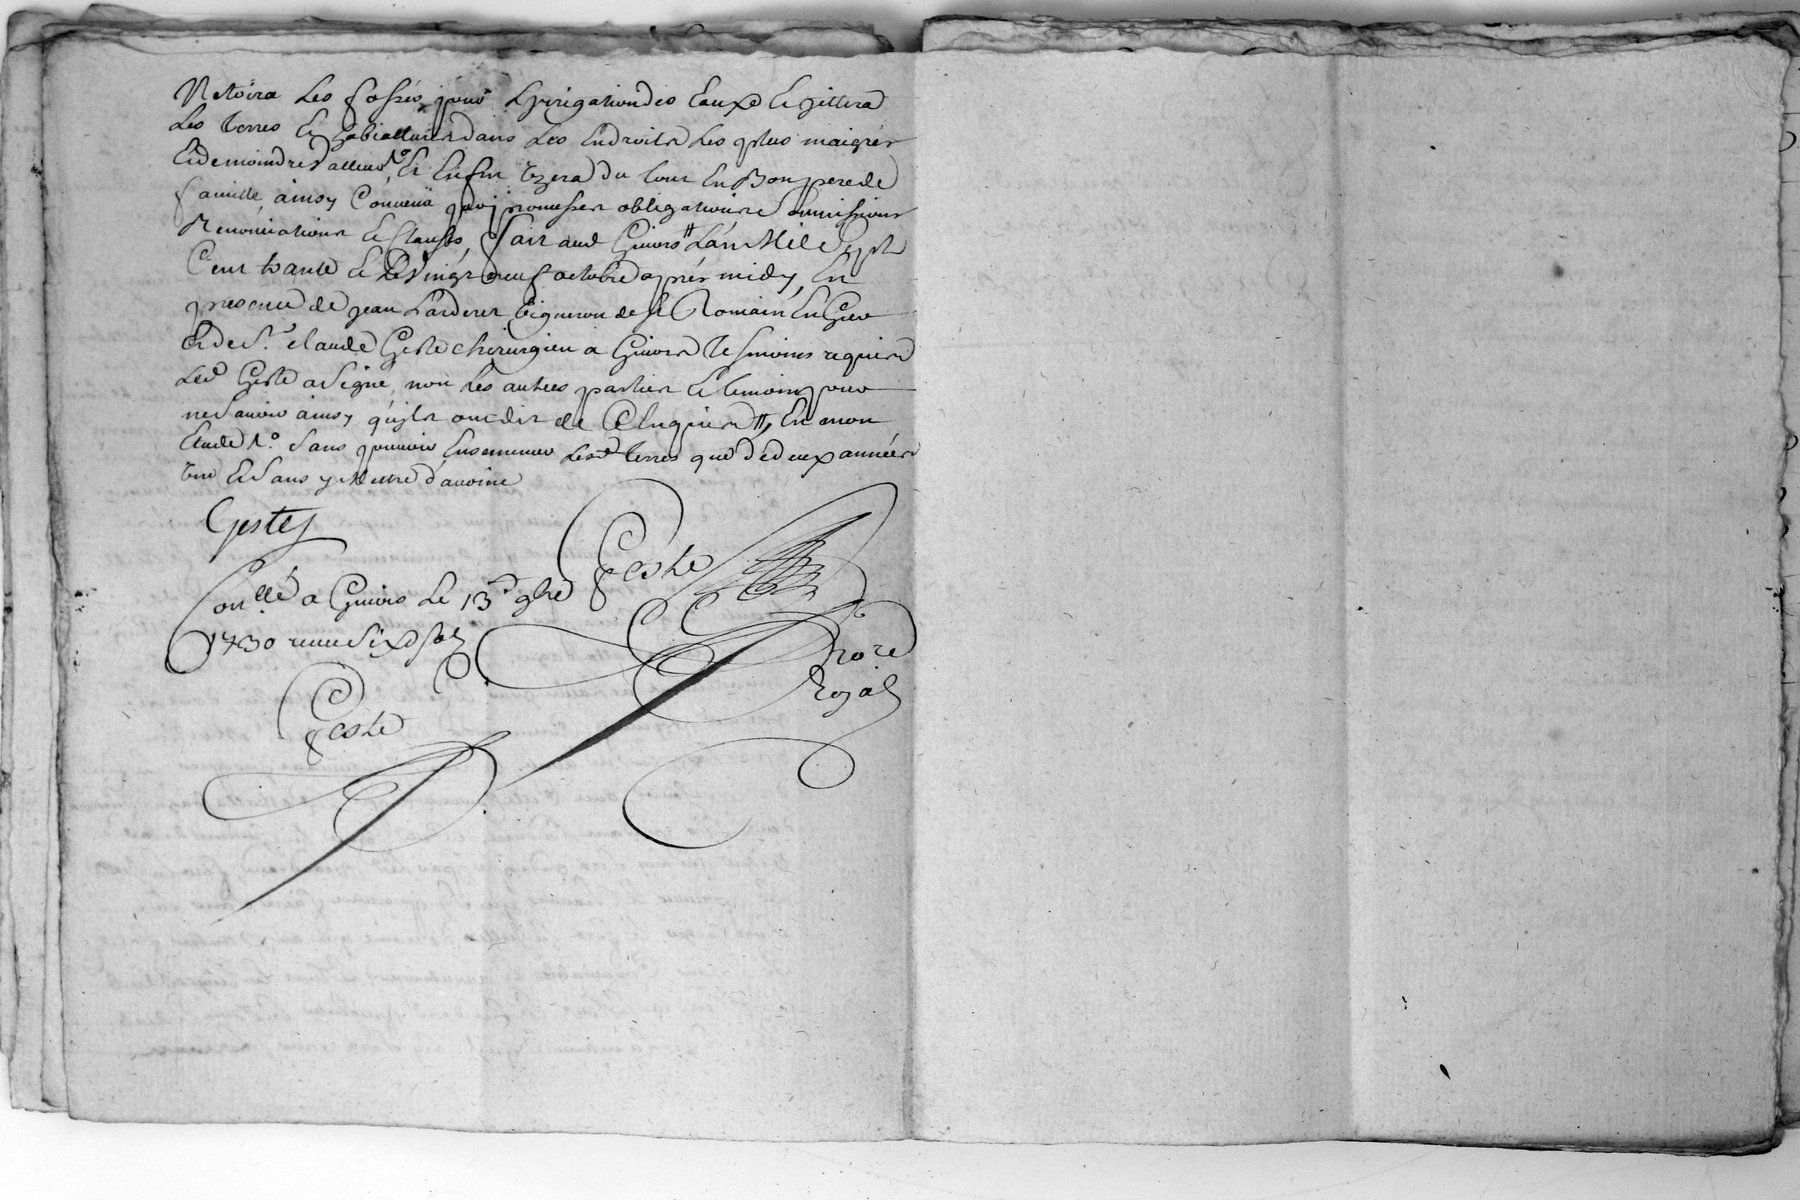 Netoira les fossés pour Lyrigation des Eaux Et jittera
Les terres Et dans Les Endroits Les plus maigres
Et de moindre valleur, Et Enfin Uzera du tout En Bon pere de
famille, ainsy Convenu par promesses obligations soumissions
Renonciations Et Clauses, fait aud Givors Lan Mil Sept
Cent trante Et Le Vingt neuf octobre après midy, En
presence de jean Larderet Vigneron de St Romain En Gier
Et de Sr. claude Geste chirurgien a Givors tesmoins requis
Led Geste a Signé, non Les autres parties Et temoin pour
ne Scavoir ainsy quils ont dit de Ce Enquis, En mon
Etude Sans pouvoir Ensemencer Lesd terres que de deux années
Une Et Sans y Mettre d'avoine
Geste
Geste
Conllé a Givors Le 13e 9bre
1730 reçu Six Sols
Nore
Royal
Geste